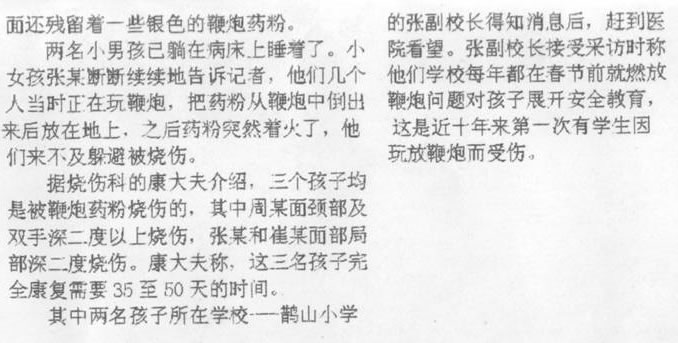 面还残留着一些银色的鞭炮药粉。
两名小男孩已躺在病床上睡着了。小
女孩张某断断续续地告诉记者，他们几个
人当时正在玩鞭炮，把药粉从鞭炮中倒出
来后放在地上，之后药粉突然着火了，他
们来不及躲避被烧伤。
据烧伤科的康大夫介绍，三个孩子均
是被鞭炮药粉烧伤的，其中周某面颈部及
双手深二度以上烧伤，张某和崔某面部局
部深二度烧伤。康大夫称，这三名孩子完
全康复需要 35 至 50 天的时间。
其中两名孩子所在学校——鹊山小学
的张副校长得知消息后，赶到医
院看望。张副校长接受采访时称
他们学校每年都在春节前就燃放
鞭炮问题对孩子展开安全教育，
这是近十年来第一次有学生因
玩放鞭炮而受伤。